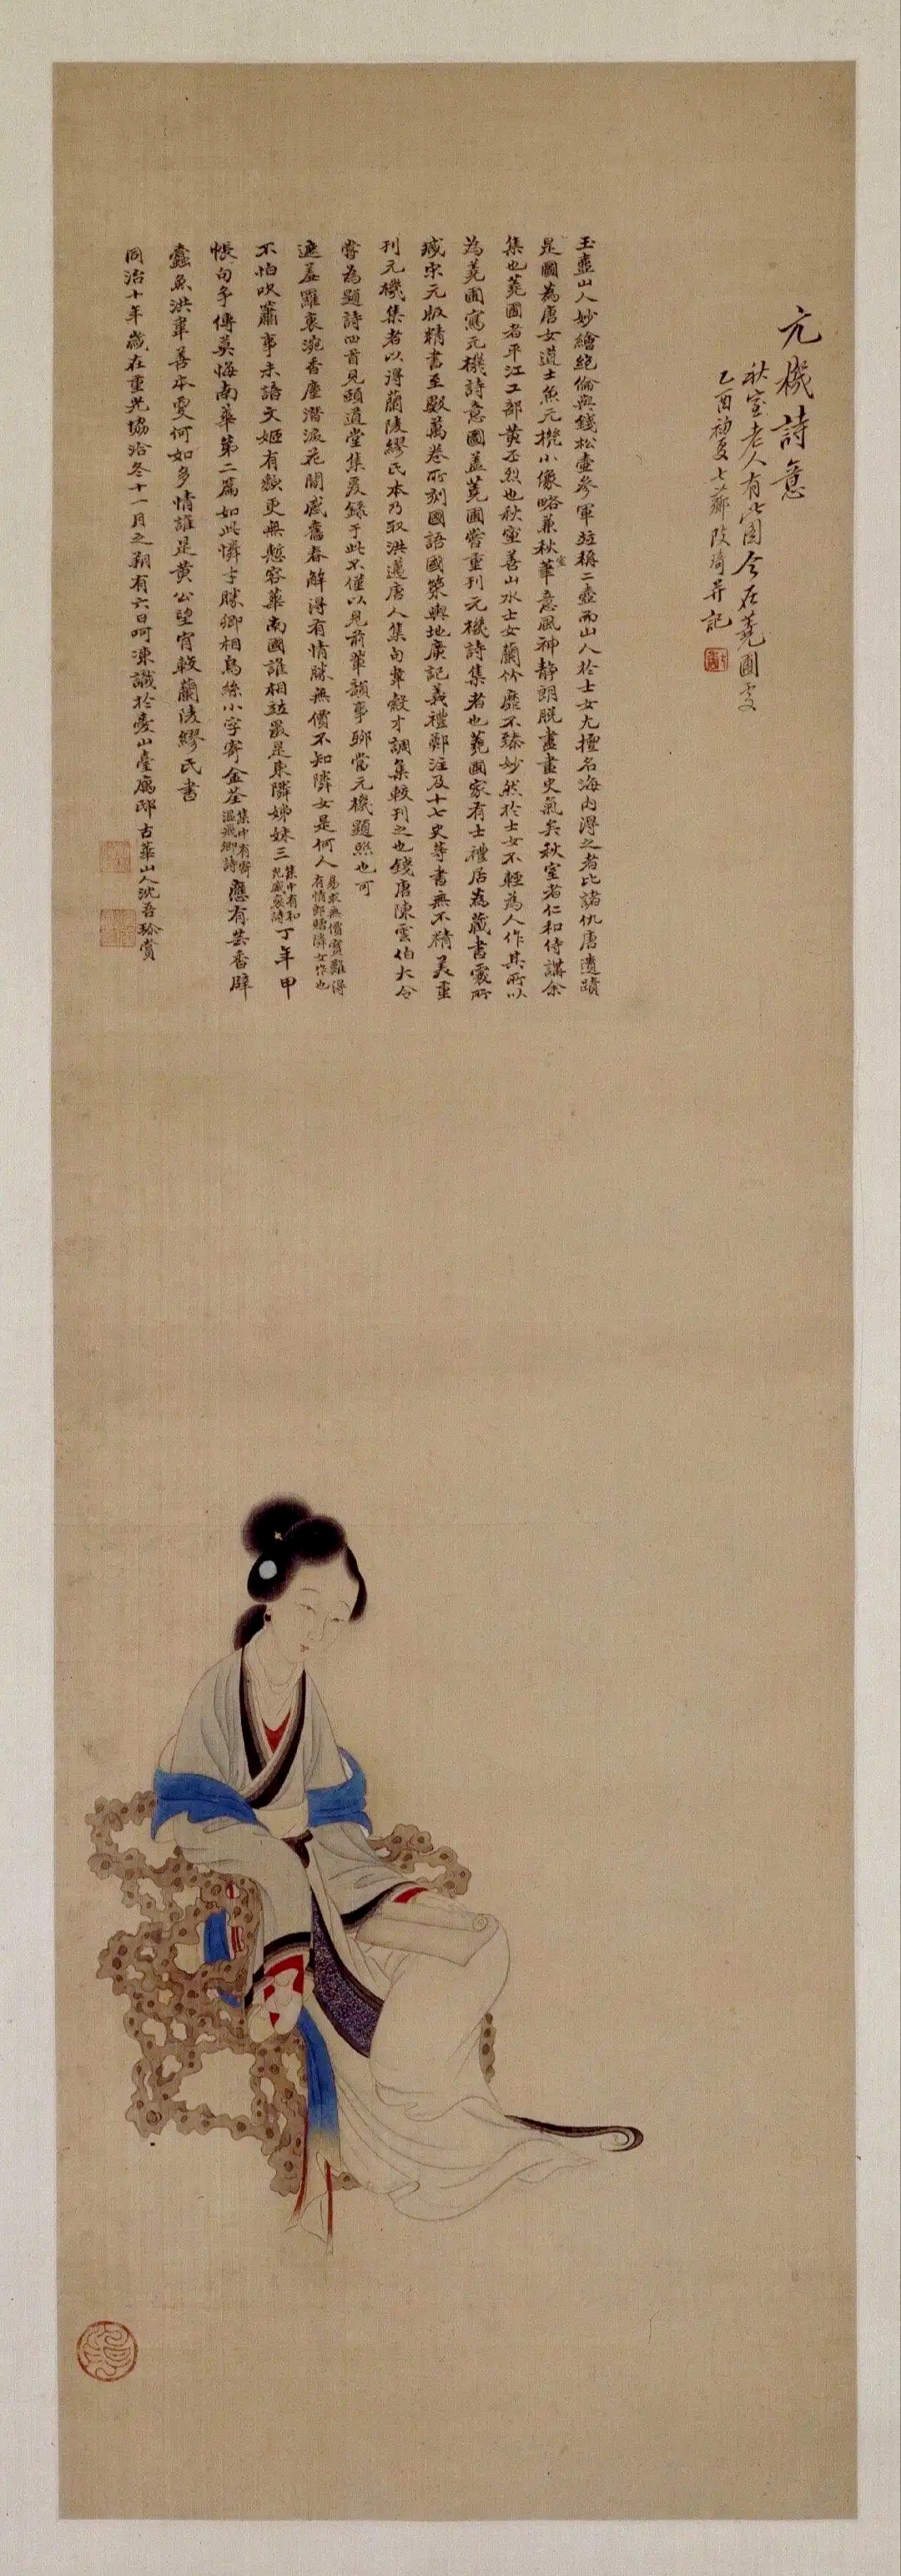 元機詩意
秋室老人有此圖今在蕘圃處
乙酉初夏七薌改琦并記
玉壺山人妙繪絕倫與錢松壺參軍竝稱二壺而山人於士女尤擅名海內得之者比諸仇唐遺蹟
是圖為唐女道士魚元機小像略兼秋室華意風神靜朗脫盡畫史氣矣秋室者仁和侍講余
集也蕘圃者平江工部黃丕烈也秋室善山水士女蘭竹靡不臻妙然於士女不輕為人作其所以
為蕘圃寫元機詩意圖蓋蕘圃嘗重刊元機詩集者也蕘圃家有士禮居為藏書處所
藏宋元版精書至數萬卷所刻國語國策輿地廣記義禮鄭注及十七史等書無不精美重
刊元機集者以得蘭陵繆氏本乃取洪邁唐人集句韋縠才調集較刊之也錢唐陳雲伯大令
嘗為題詩四首見頤道堂集爰錄于此不僅以見前輩韻事聊當元機題照也可
遮羞羅袖浣香塵潛淚花間感舊春解得有情勝無價不知隣女是何人易求無價寶難得
有情郎贈隣女作也
不怕吹簫事未諧文姬有貌更無慙容華南國誰相竝最是東隣姊妹三集中有和
光威裒詩丁年甲
帳句爭傳莫悔南華第二篇如此憐才勝卿相烏絲小字寄金荃集中有寄
溫飛卿詩應有芸香辟
蠹魚洪韋善本更何如多情誰是黃公望宵較蘭陵繆氏書
同治十年歲在重光協洽冬十一月之朔有六日呵凍識於愛山臺廡邸古華山人沈吾